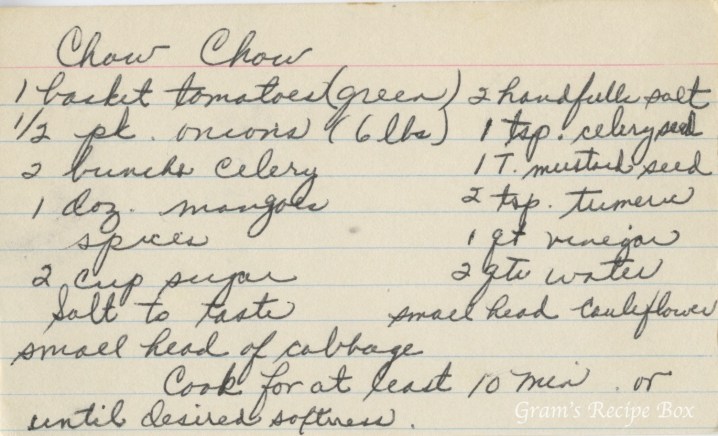 Chow Chow
1 basket tomatoes (green) 2 handfulls salt
1/2 pk. onions (6 lbs) 1 tsp. celery seed
2 bunches celery 1 T. mustard seed
1 doz. mangoes 2 tsp. tumeric
spices 1 qt vinegar
2 cup sugar 2 qts water
Salt to taste small head cauliflower
small head of cabbage
Cook for at least 10 min or
until desired softness.
Gram's Recipe Box